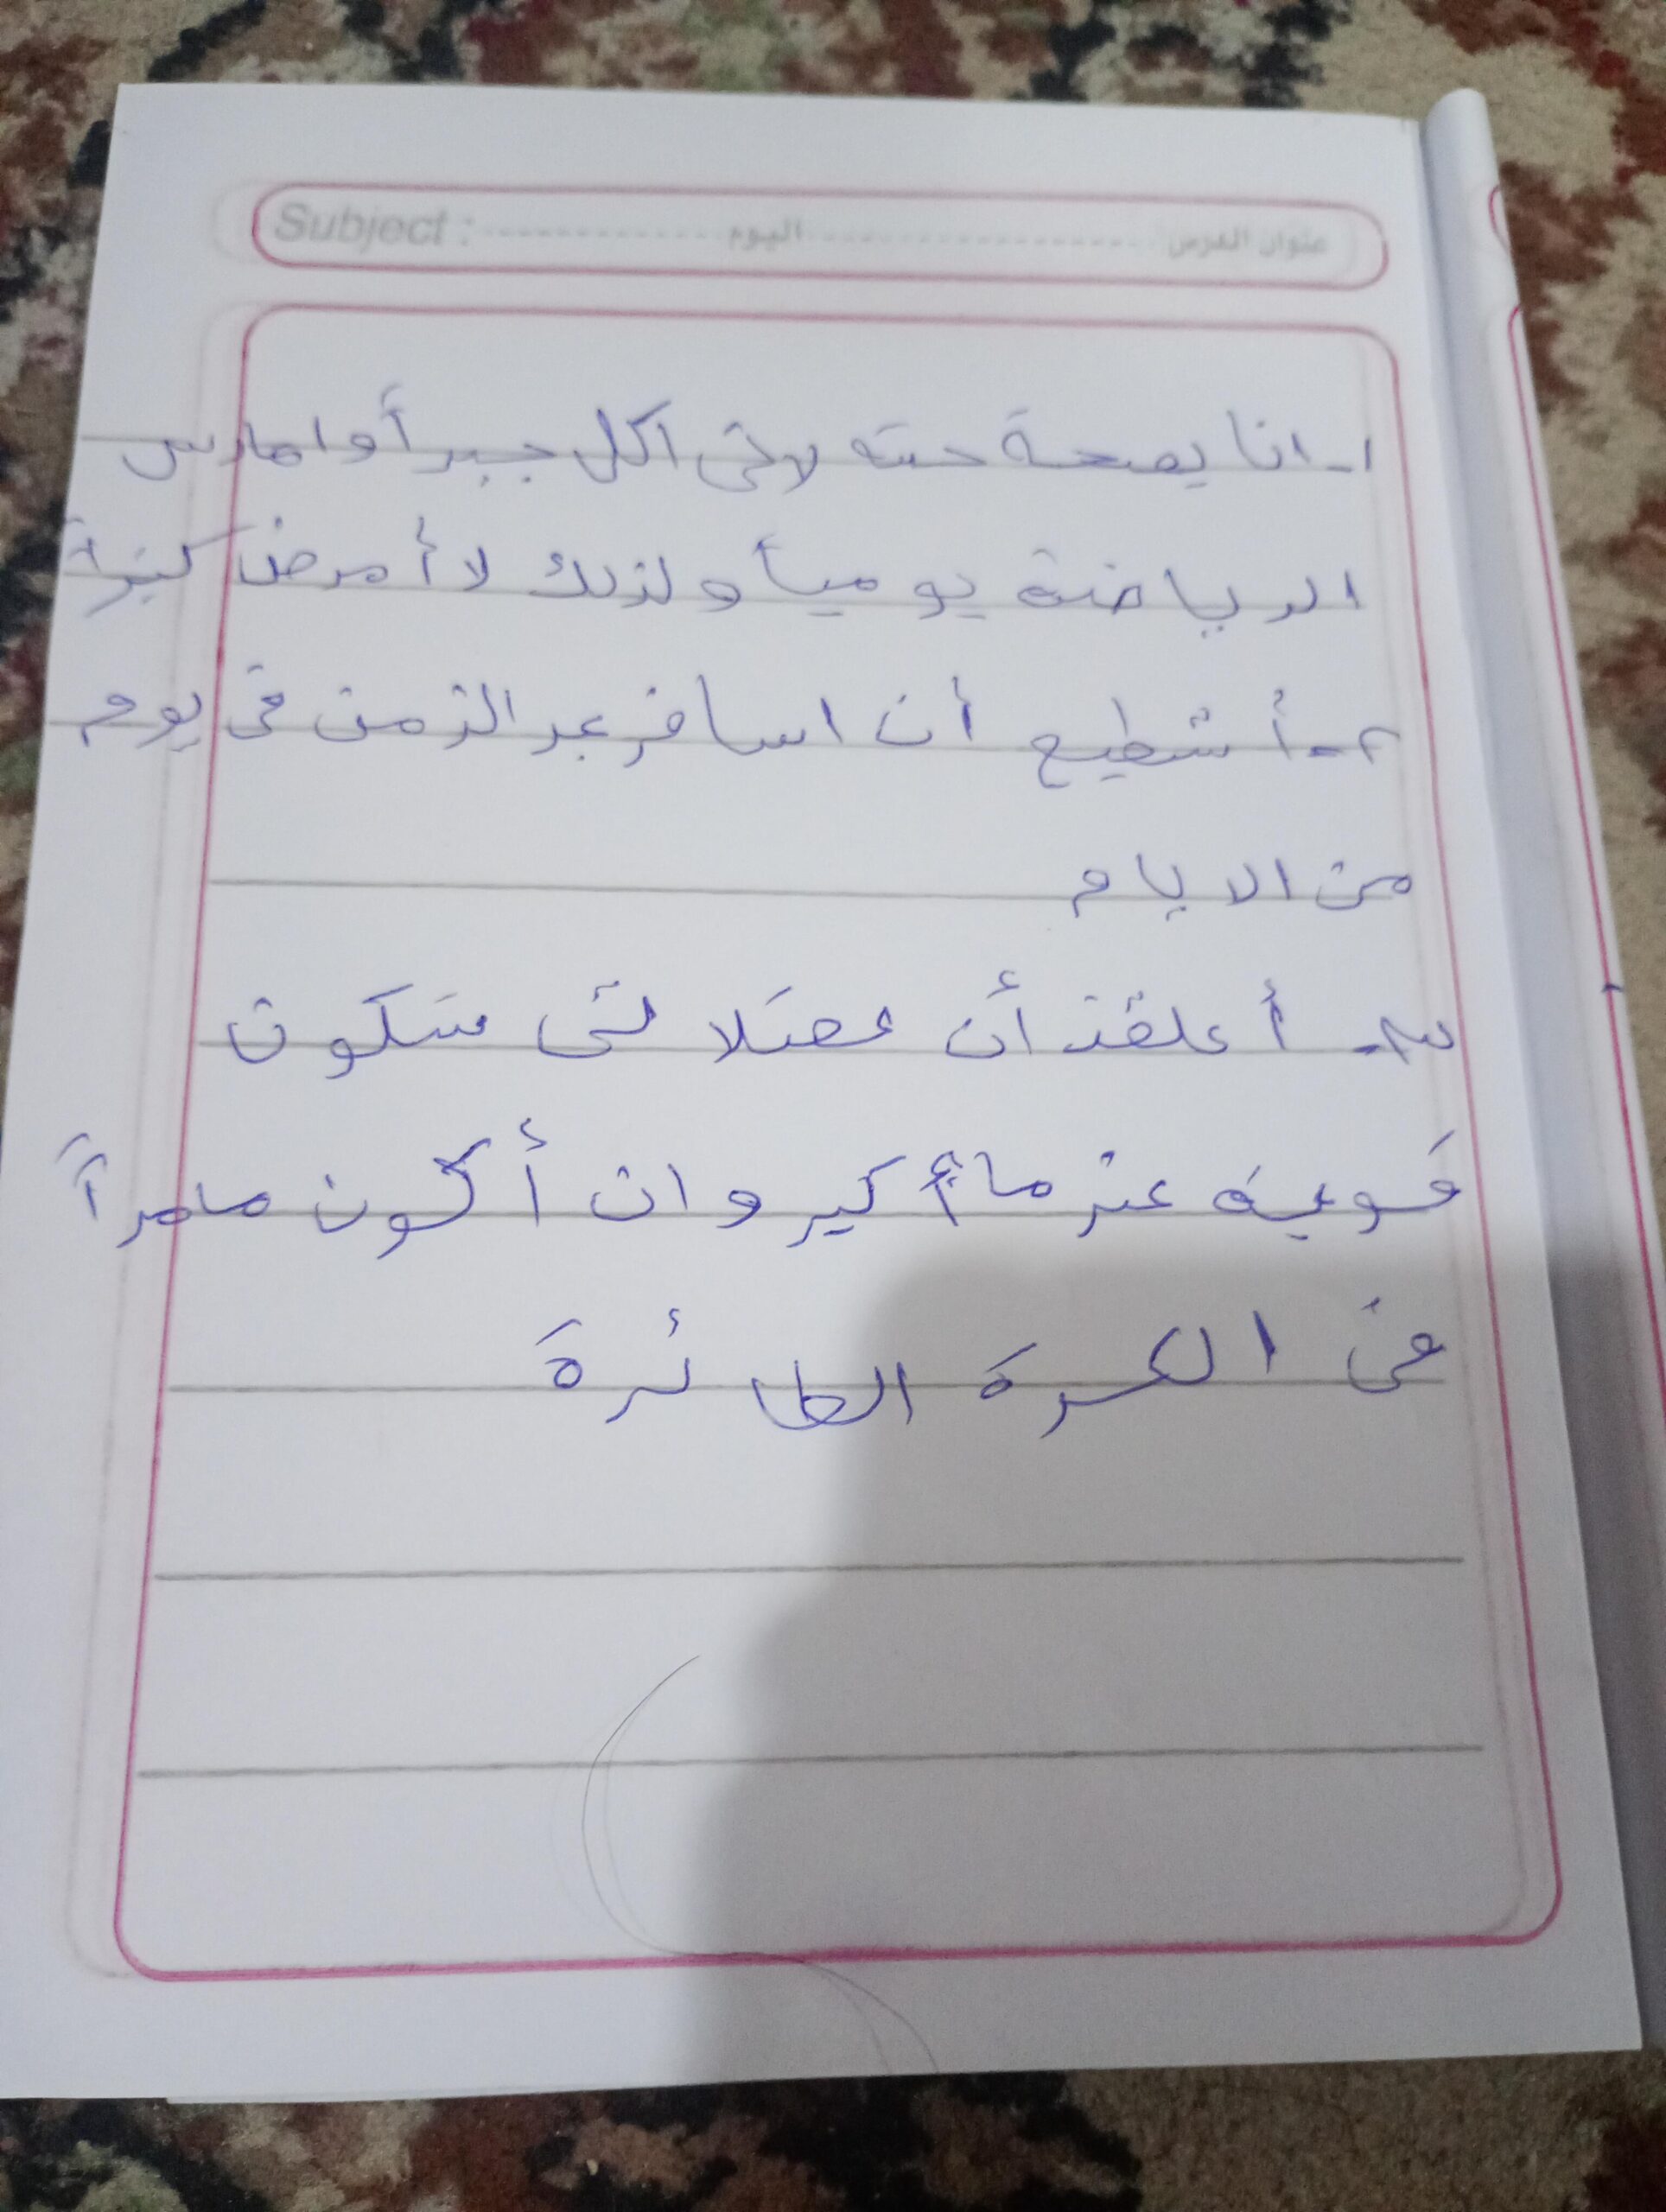 Subject : اليوم عنوان الدرس
١- انا بصحة حسنه لانى اكل جيداً و امارس
الرياضة يومياً ولذلك لا أمرض كثيراً
٢- أستطيع أن اسافر عبر الزمن فى يوم
من الايام
٣- أعتقد أن عضلاتى ستكون
قويه عندما أكبر وان أكون ماهراً
فى الكرة الطائرة